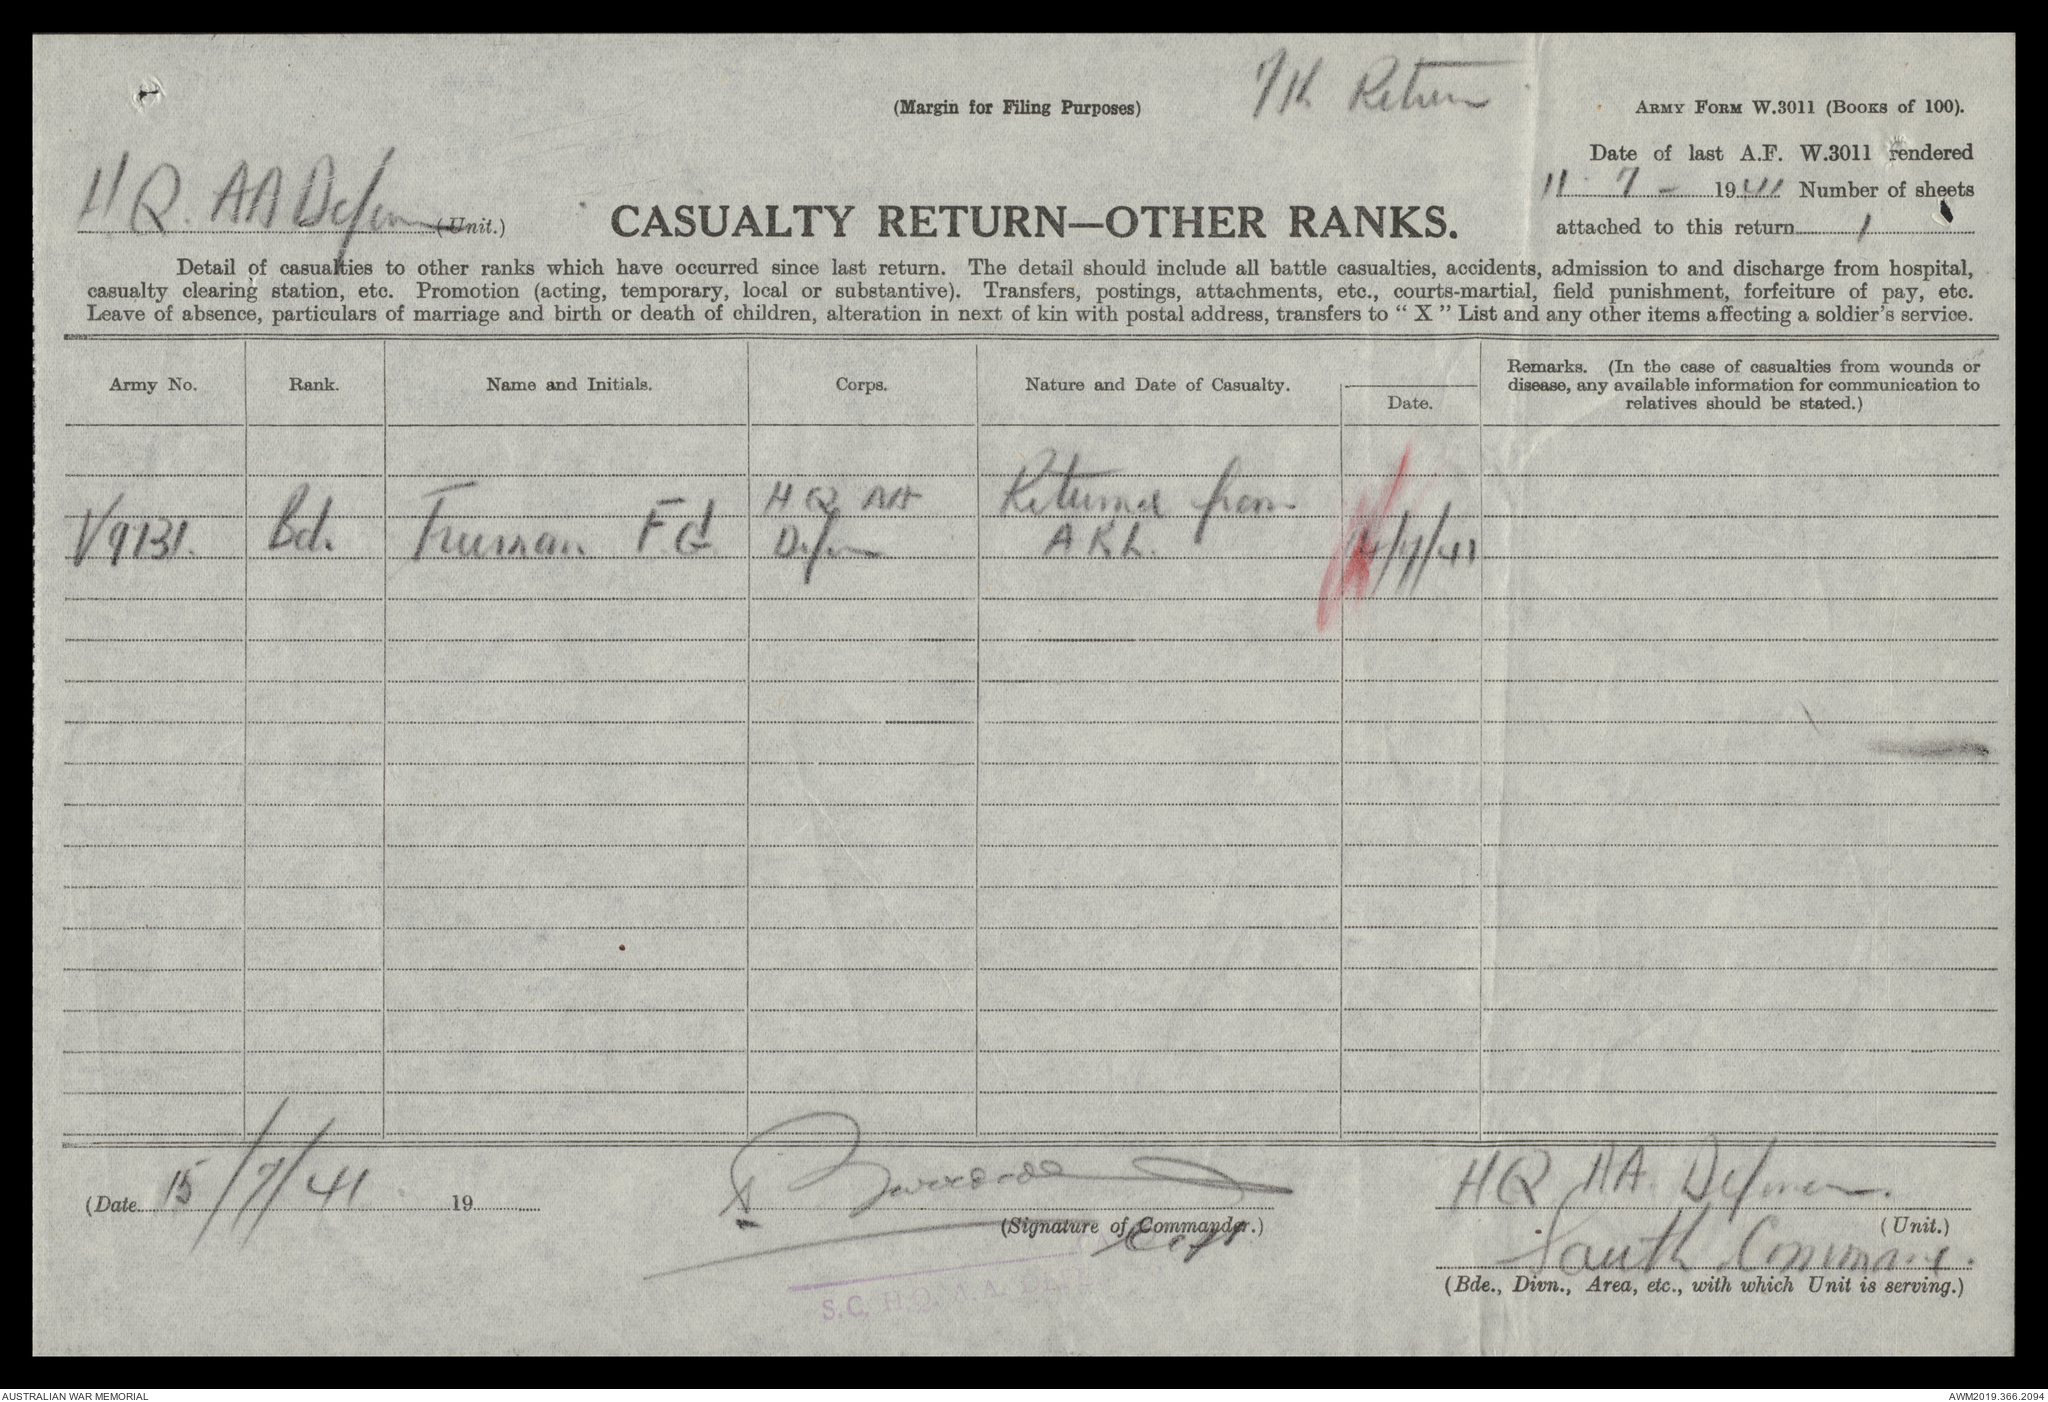 7th Return
(Margin for Filing Purposes)
ARMY FORM W.3011 (BOOKS of 100).
Date of last A.F. W.3011 rendered
11 - 7 - 1941 Number of sheets
attached to this return 1
H Q. AA Defences (Unit.)
CASUALTY RETURN—OTHER RANKS.
Detail of casualties to other ranks which have occurred since last return. The detail should include all battle casualties, accidents, admission to and discharge from hospital,
casualty clearing station, etc. Promotion (acting, temporary, local or substantive). Transfers, postings, attachments, etc., courts-martial, field punishment, forfeiture of pay, etc.
Leave of absence, particulars of marriage and birth or death of children, alteration in next of kin with postal address, transfers to “ X ” List and any other items affecting a soldier's service.
Army No.
Rank.
Name and Initials.
Corps.
Nature and Date of Casualty.
Date.
Remarks. (In the case of casualties from wounds or
disease, any available information for communication to
relatives should be stated.)
V9131.
Bd.
Truman F.G.
H Q AA
Defences
Returned from
A.R.L.
14/7/41
(Date 15/7/41 19
(Signature of Commander.)
Capt
S.C. H.Q. A.A.
HQ AA. Defences.
(Unit.)
South Command.
(Bde., Divn., Area, etc., with which Unit is serving.)
AUSTRALIAN WAR MEMORIAL
AWM2019.366.2094